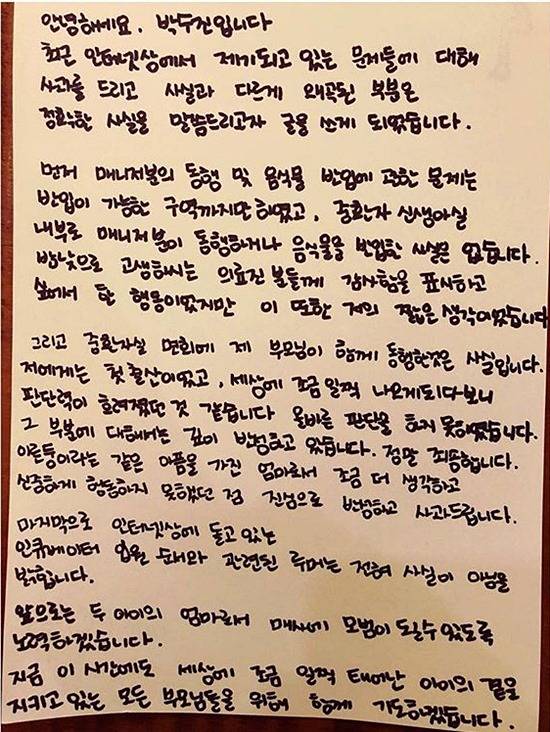 안녕하세요. 박수진입니다
최근 인터넷상에서 제기되고 있는 문제들에 대해
사과를 드리고 사실과 다르게 왜곡된 부분은
정확한 사실을 말씀드리고자 글을 쓰게 되었습니다.
먼저 매니저분의 동행 및 음식물 반입에 관한 문제는
반입이 가능한 구역까지만 하였고, 중환자 신생아실
내부로 매니저분이 동행하거나 음식물을 반입한 사실은 없습니다.
밤낮으로 고생하시는 의료진 분들께 감사함을 표시하고
싶어서 한 행동이었지만 이 또한 저의 짧은 생각이었습니다
그리고 중환자실 면회에 제 부모님이 함께 동행한것은 사실입니다.
저에게는 첫 출산이었고, 세상에 조금 일찍 나오게되다보니
판단력이 흐려졌던 것 같습니다 올바른 판단을 하지 못하였습니다.
그 부분에 대해서는 깊이 반성하고 있습니다. 정말 죄송합니다.
이른둥이라는 같은 아픔을 가진 엄마로서 조금 더 생각하고
신중하게 행동하지 못했던 점 진심으로 반성하고 사과드립니다.
마지막으로 인터넷상에 돌고 있는
인큐베이터 입원 순서와 관련된 루머는 전혀 사실이 아님을
밝힙니다.
앞으로는 두 아이의 엄마로서 매사에 모범이 될수 있도록
노력하겠습니다.
지금 이 시간에도 세상에 조금 일찍 태어난 아이의 곁을
지키고 있는 모든 부모님들을 위해 함께 기도하겠습니다.